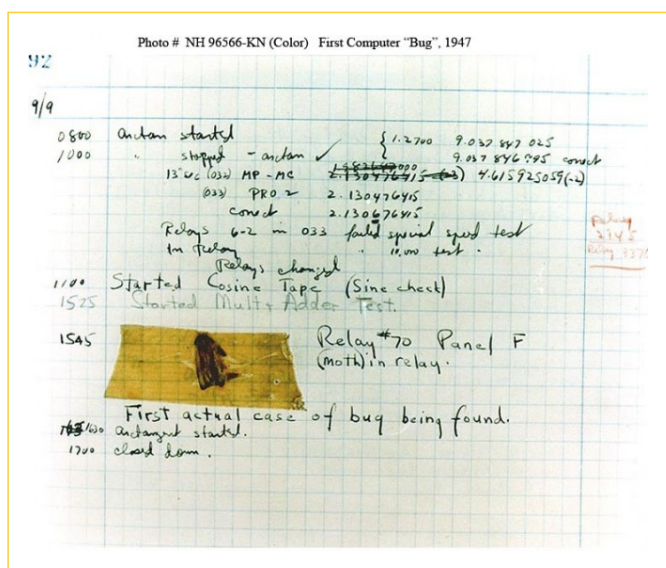 Photo # NH 96566-KN (Color) First Computer “Bug”, 1947
92
9/9
0800 arctan started
1000 " stopped - arctan ✓
{ 1.2700 9.037 847 025
9.037 846 995 correct
13"uc (032) MP - MC 2.130476415 (-2) 4.615925059(-2)
(033) PRO 2 2.130476415
correct 2.130676415
Relays 6-2 in 033 failed special speed test
In Relay " 10.000 test .
Relays changed
Relay
2145
Relay 3370
1100 Started Cosine Tape (Sine check)
1525 Started Mult+ Adder Test.
1545 Relay #70 Panel F
(moth) in relay.
First actual case of bug being found.
1630 arctangent started.
1700 closed down .